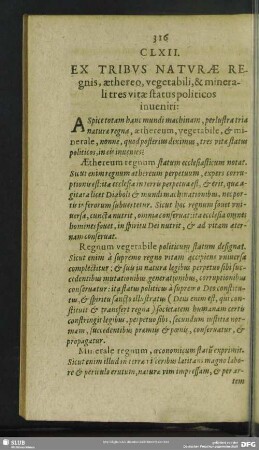 316
CLXII.
EX TRIBVS NATVRÆ RE-
gnis, æthereo, vegetabili, & minera-
li tres vitæ status politicos
inueniri:
Aspice totam hanc mundi machinam, perlustra tria
naturæ regna, æthereum, vegetabile, & mi-
nerale, nonne, quod posterim diximus, tres vitæ status
politicos, in eis inuenies?
Æthereum regnum statum ecclesiasticum notat.
Sicut enim regnum æthereum perpetuum, expers corru-
ptionu est: ita ecclesia in terris perpetua est, & erit, quæ a-
gitata licet Diaboli & mundi machinationibus, nec por-
tis inferorum subuertetur. Sicut hoc regnum fouet vni-
uersa, cuncta nutrit, omnia conseruat: ita ecclesia omnes
homines fouet, in spiritu Dei nutrit, & ad vitam æter-
nam conseruat.
Regnum vegetabile politicum statum designat.
Sicut enim à supremo regno vitam accipiens vniuersa
complectitur, & suis in natura legibus perpetuis sibi suc-
cedentibus mutationibus generationibus, corruptionibus
conseruatur: ita status politicus à supremo Deo constitu-
tus, & spiritu sancto illustratus (Deus enim est, qui con-
stituit & transfert regna) societatem humanam certis
constringit legibus, perpetuo sibi, secundum iustitiæ nor-
mam, succedentibus præmijs & pœnis, conseruatur, &
propagatur.
Minerale regnum, œconomicum statū exprimit.
Sicut enim illud in terræ visceribus latitans magno labo-
re & periculo eruitur, naturæ vim impressam, & per ar-
tem
SLUB